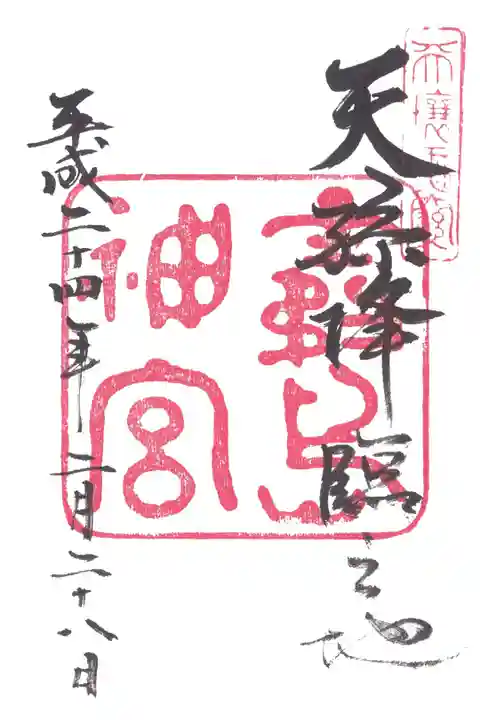 天孫降臨之地
霧島
神宮
平成二十四年二月二十八日